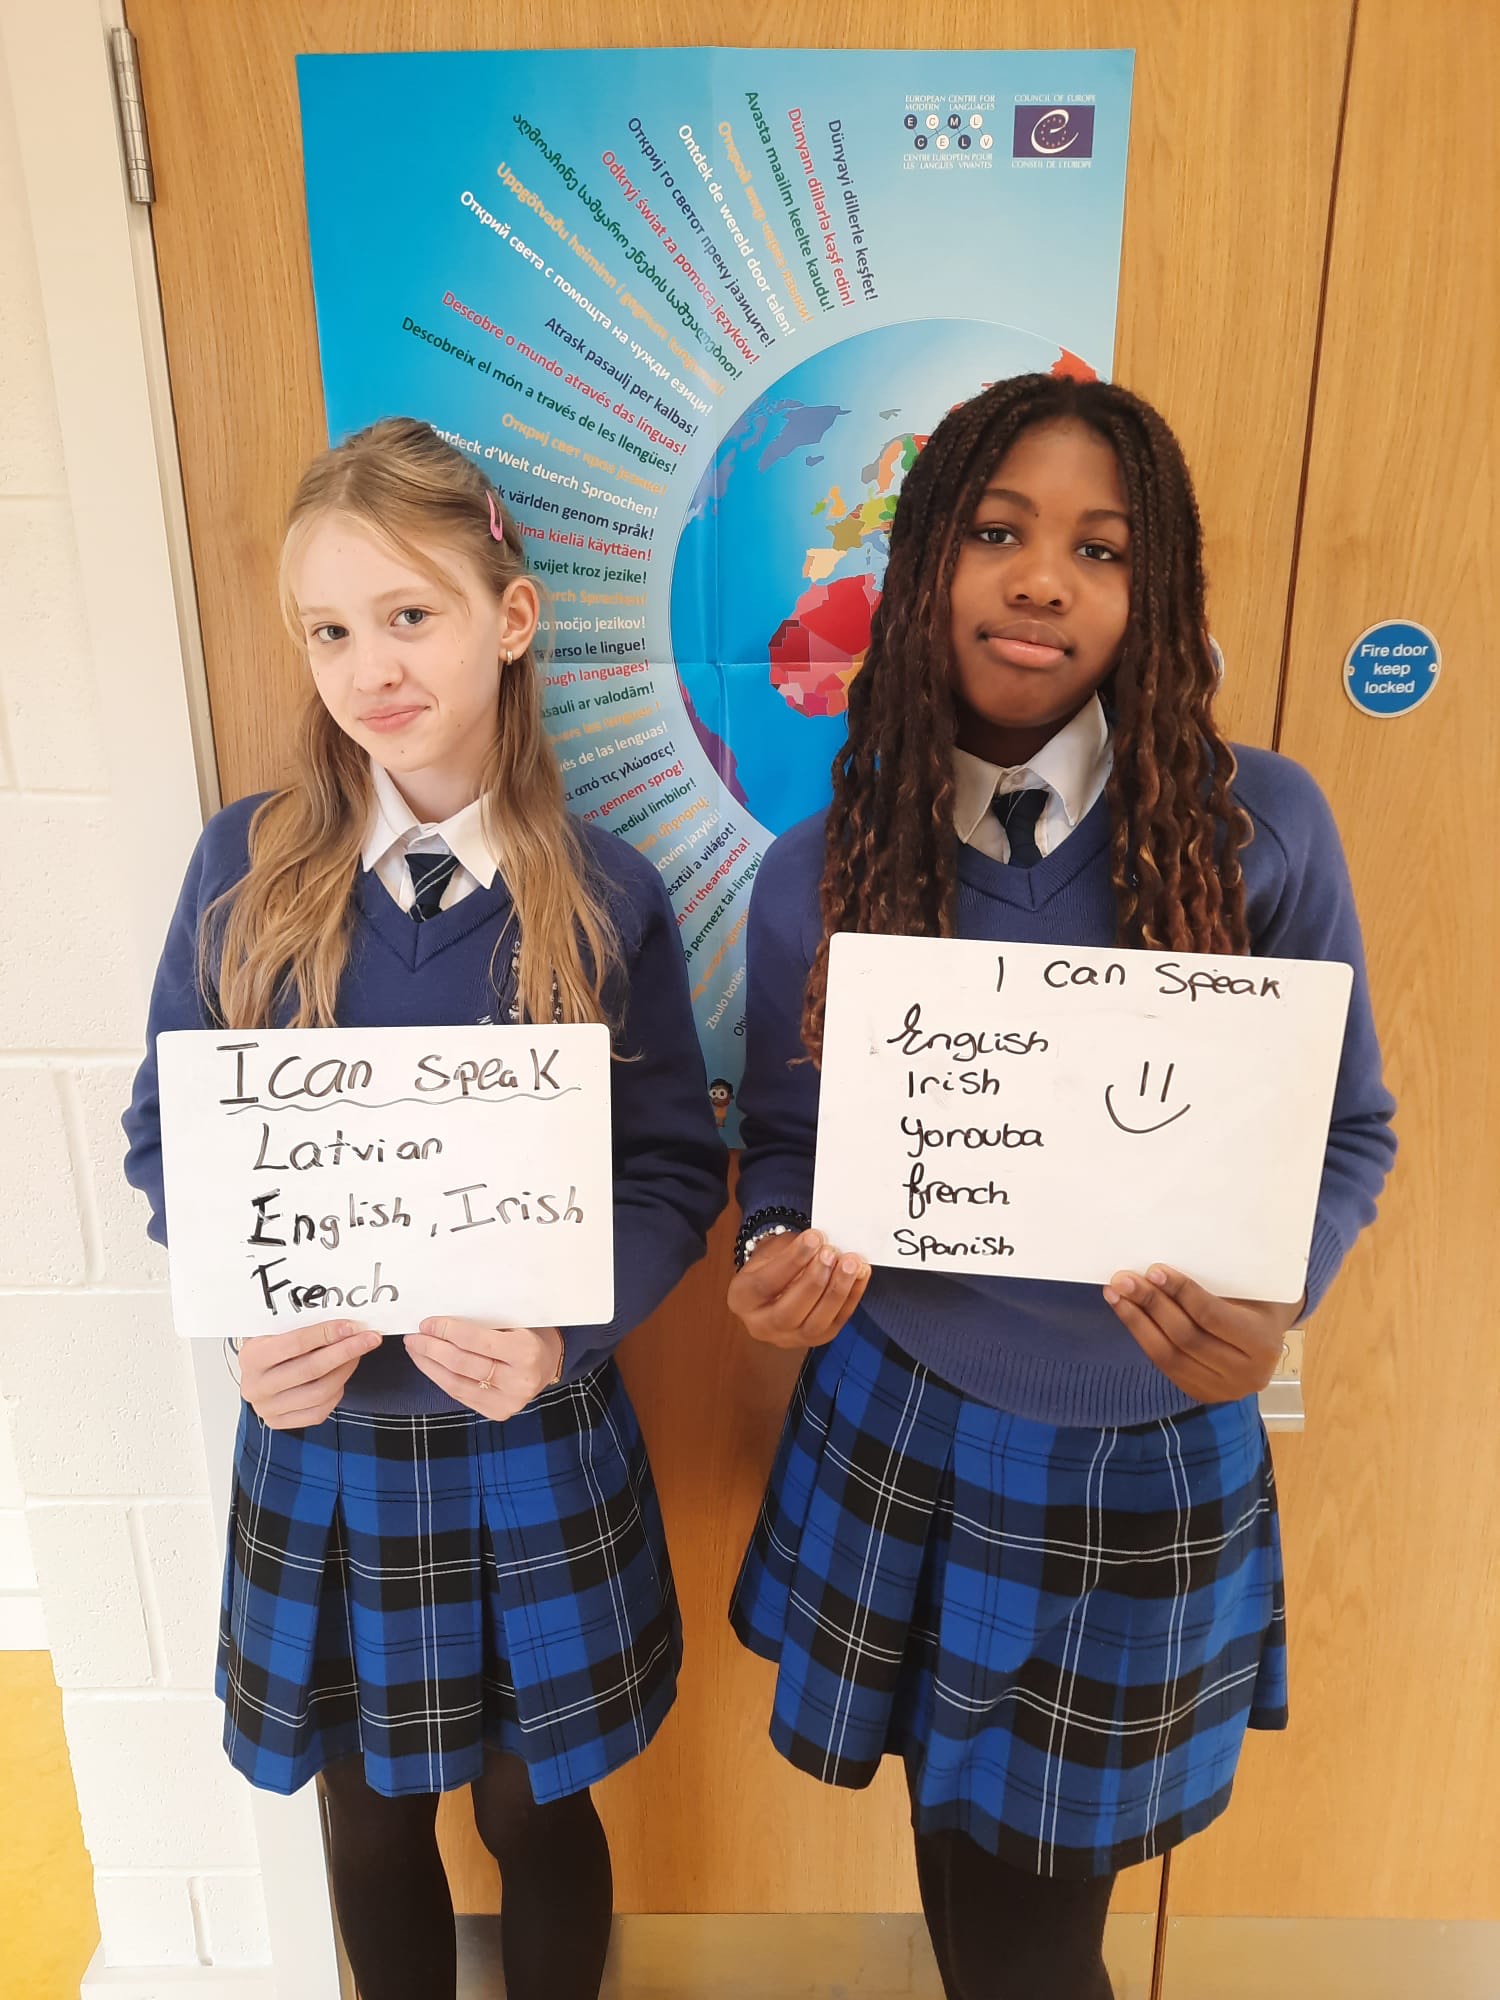 EUROPEAN CENTRE FOR
MODERN LANGUAGES
E C M L
C E L V
CENTRE EUROPEEN POUR
LES LANGUES VIVANTES
COUNCIL OF EUROPE
CONSEIL DE L'EUROPE
Dünyayi dillerle keşfet!
Dünyanı dillərlə kəşf edin!
Avasta maailm keelte kaudu!
Открой мир через языки!
Ontdek de wereld door talen!
Откриј го светот преку јазиците!
Odkryj świat za pomocą języków!
აღმოაჩინე სამყარო ენების საშუალებით!
Uppgötvaðu heiminn í gegnum
Открий света с помощта на чужди езици!
Atrask pasaulį per kalbas!
Descobre o mundo através das línguas!
Descobreix el món a través de les llengües!
Откриј свет кроз језике!
Entdeck d'Welt duerch Sproochen!
k världen genom språk!
ilma kieliä käyttäen!
i svijet kroz jezike!
urch Sprachen!
pomočjo jezikov!
averso le lingue!
ough languages!
asauli ar valodām!
vers les langues !
és de las lenguas!
α από τις γλώσσες!
en gennem sprog!
mediul limbilor!
ictvím jazyků!
esztül a világot!
an trí theangacha!
ja permezz tal-lingwi!
Zbulo botën
Fire door
keep
locked
I can speak
Latvian
English, Irish
French
I can speak
English
Irish
Yorouba
french
Spanish